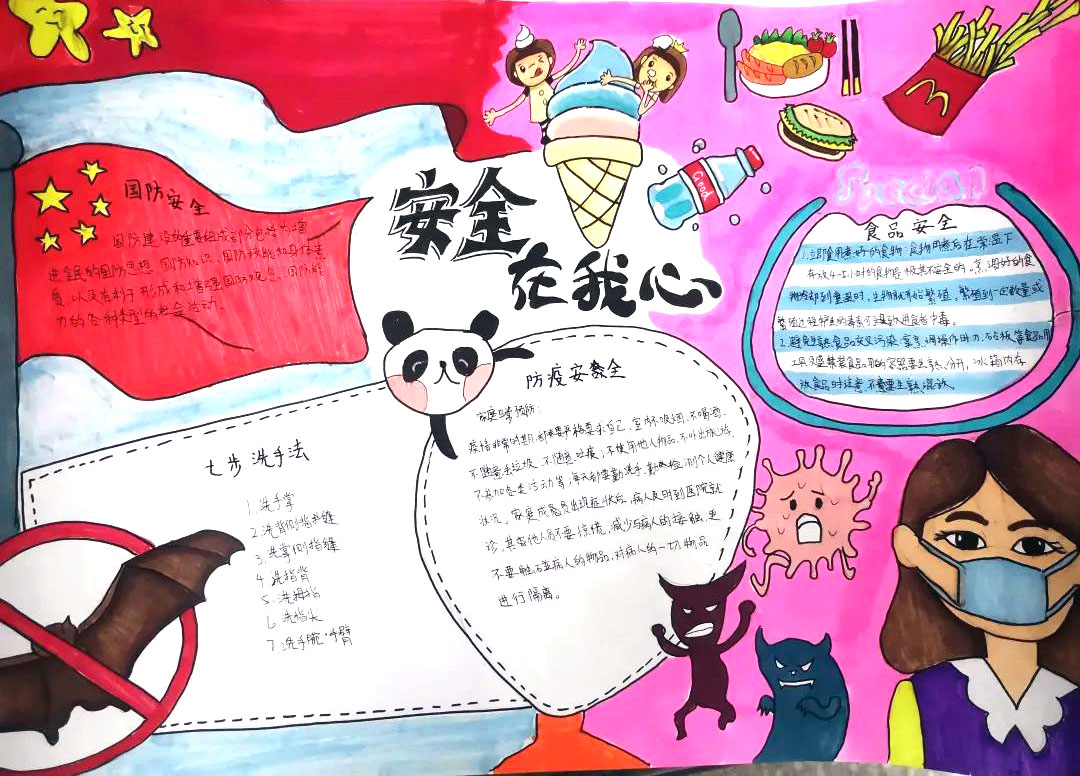 安全
在我心
国防安全
国防建设的重要组成部分包括为增
进全民的国防思想、国防知识、国防技能和身体素
质,以及有利于形成和增强国防观念、国防能
力的各种类型的社会活动。
Good
Special
食品安全
1.立即食用煮好的食物:食物煮后在常温下
存放4-5小时的食物是极其不安全的。烹调好的食
物冷却到室温时,生物就开始繁殖。繁殖到一定数量或
繁殖过程产生的毒素可导致进食者中毒。
2.避免生熟食品交叉污染:烹烹调操作用刀、砧板等食品用
工具及盛装食品用的容器要生熟分开,冰箱内存
放食品时注意不要生熟混放。
防疫安全
家庭日常预防:
疫情非常时期,都要严格要求自己,室内不吸烟,不喝酒、
不随意丢垃圾、不随意垃圾;不使用他人物品,不外出旅游、
不参加各类活动等,每天都要勤洗手,勤检测个人健康
状况。家庭成员出现症状后,病人及时到医院就
诊,其他人不要惊慌,减少与病人的接触,更
不要触碰病人的物品,对病人的一切物品
进行隔离。
七步洗手法
1.洗手掌
2.洗背侧指缝
3.洗掌侧指缝
4.洗指背
5.洗拇指
6.洗指头
7.洗手腕·手臂